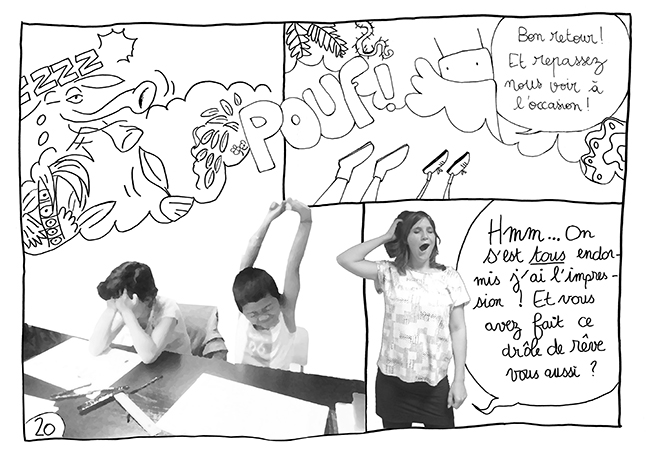 ZZZZ
POUF!
Bon retour!
Et repassez
nous voir à
l'occasion!
Hmm... On
s'est tous endor-
mis j'ai l'impres-
sion ! Et vous
avez fait ce
drôle de rêve
vous aussi ?
20